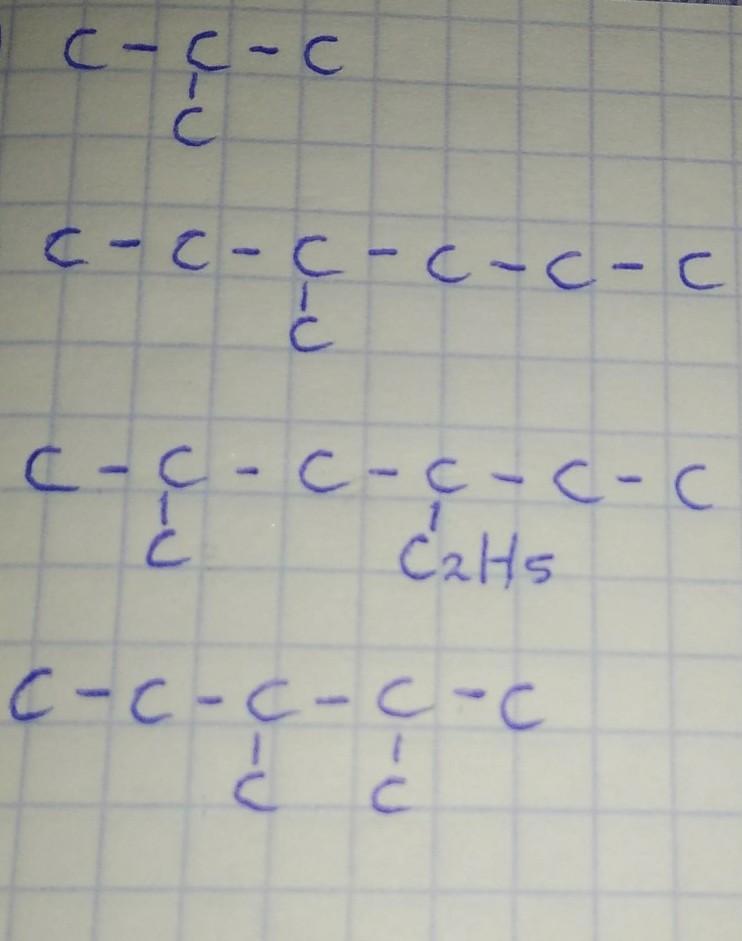 C - C - C
C
C - C - C - C - C - C
C
C - C - C - C - C - C
C C2H5
C - C - C - C - C
C C